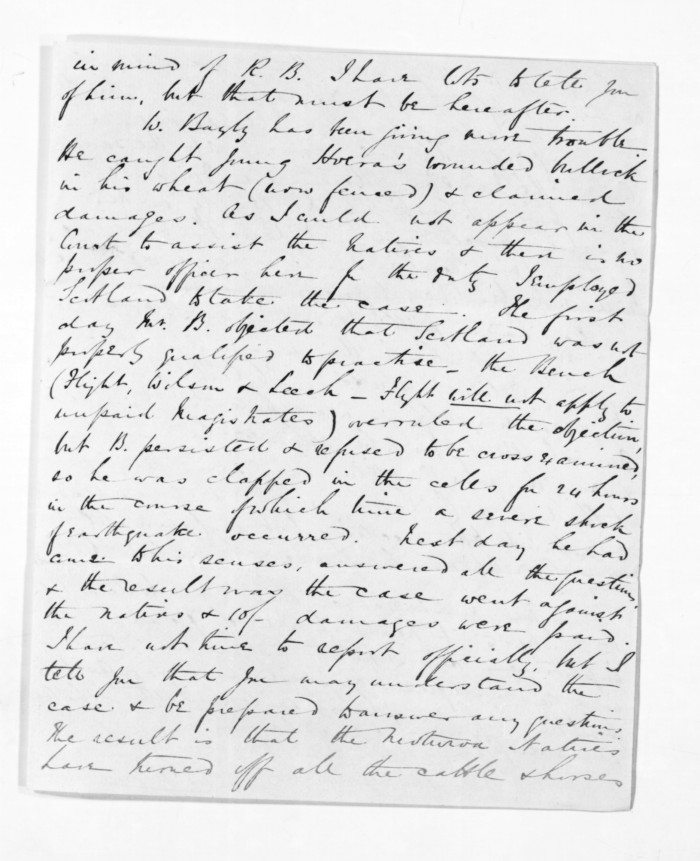 in mind of R. B. I have lots to tell you
of him, but that must be hereafter.
W. Bayly has been giving more trouble
He caught young Hoera's wounded bullock
in his wheat (now fenced) & claimed
damages. As I could not appear in the
Court to assist the Natives & there is no
proper officer here for the duty I employed
Scotland to take the case. The first
day Mr. B. objected that Scotland was not
properly qualified to practise - the Bench
(Flight, Wilson & Leech - Flight will not apply to
unpaid Magistrates) overruled the objection,
but B. persisted & refused to be cross examined,
so he was clapped in the cells for 24 hours
in the course of which time a severe shock
of earthquake occurred. Next day he had
come to his senses, answered all the questions,
& the result was the case went against
the natives & 10/- damages were paid.
I have not time to report officially, but I
tell you that you may understand the
case & be prepared to answer any questions.
The result is that the Natives
have turned off all the cattle & horses